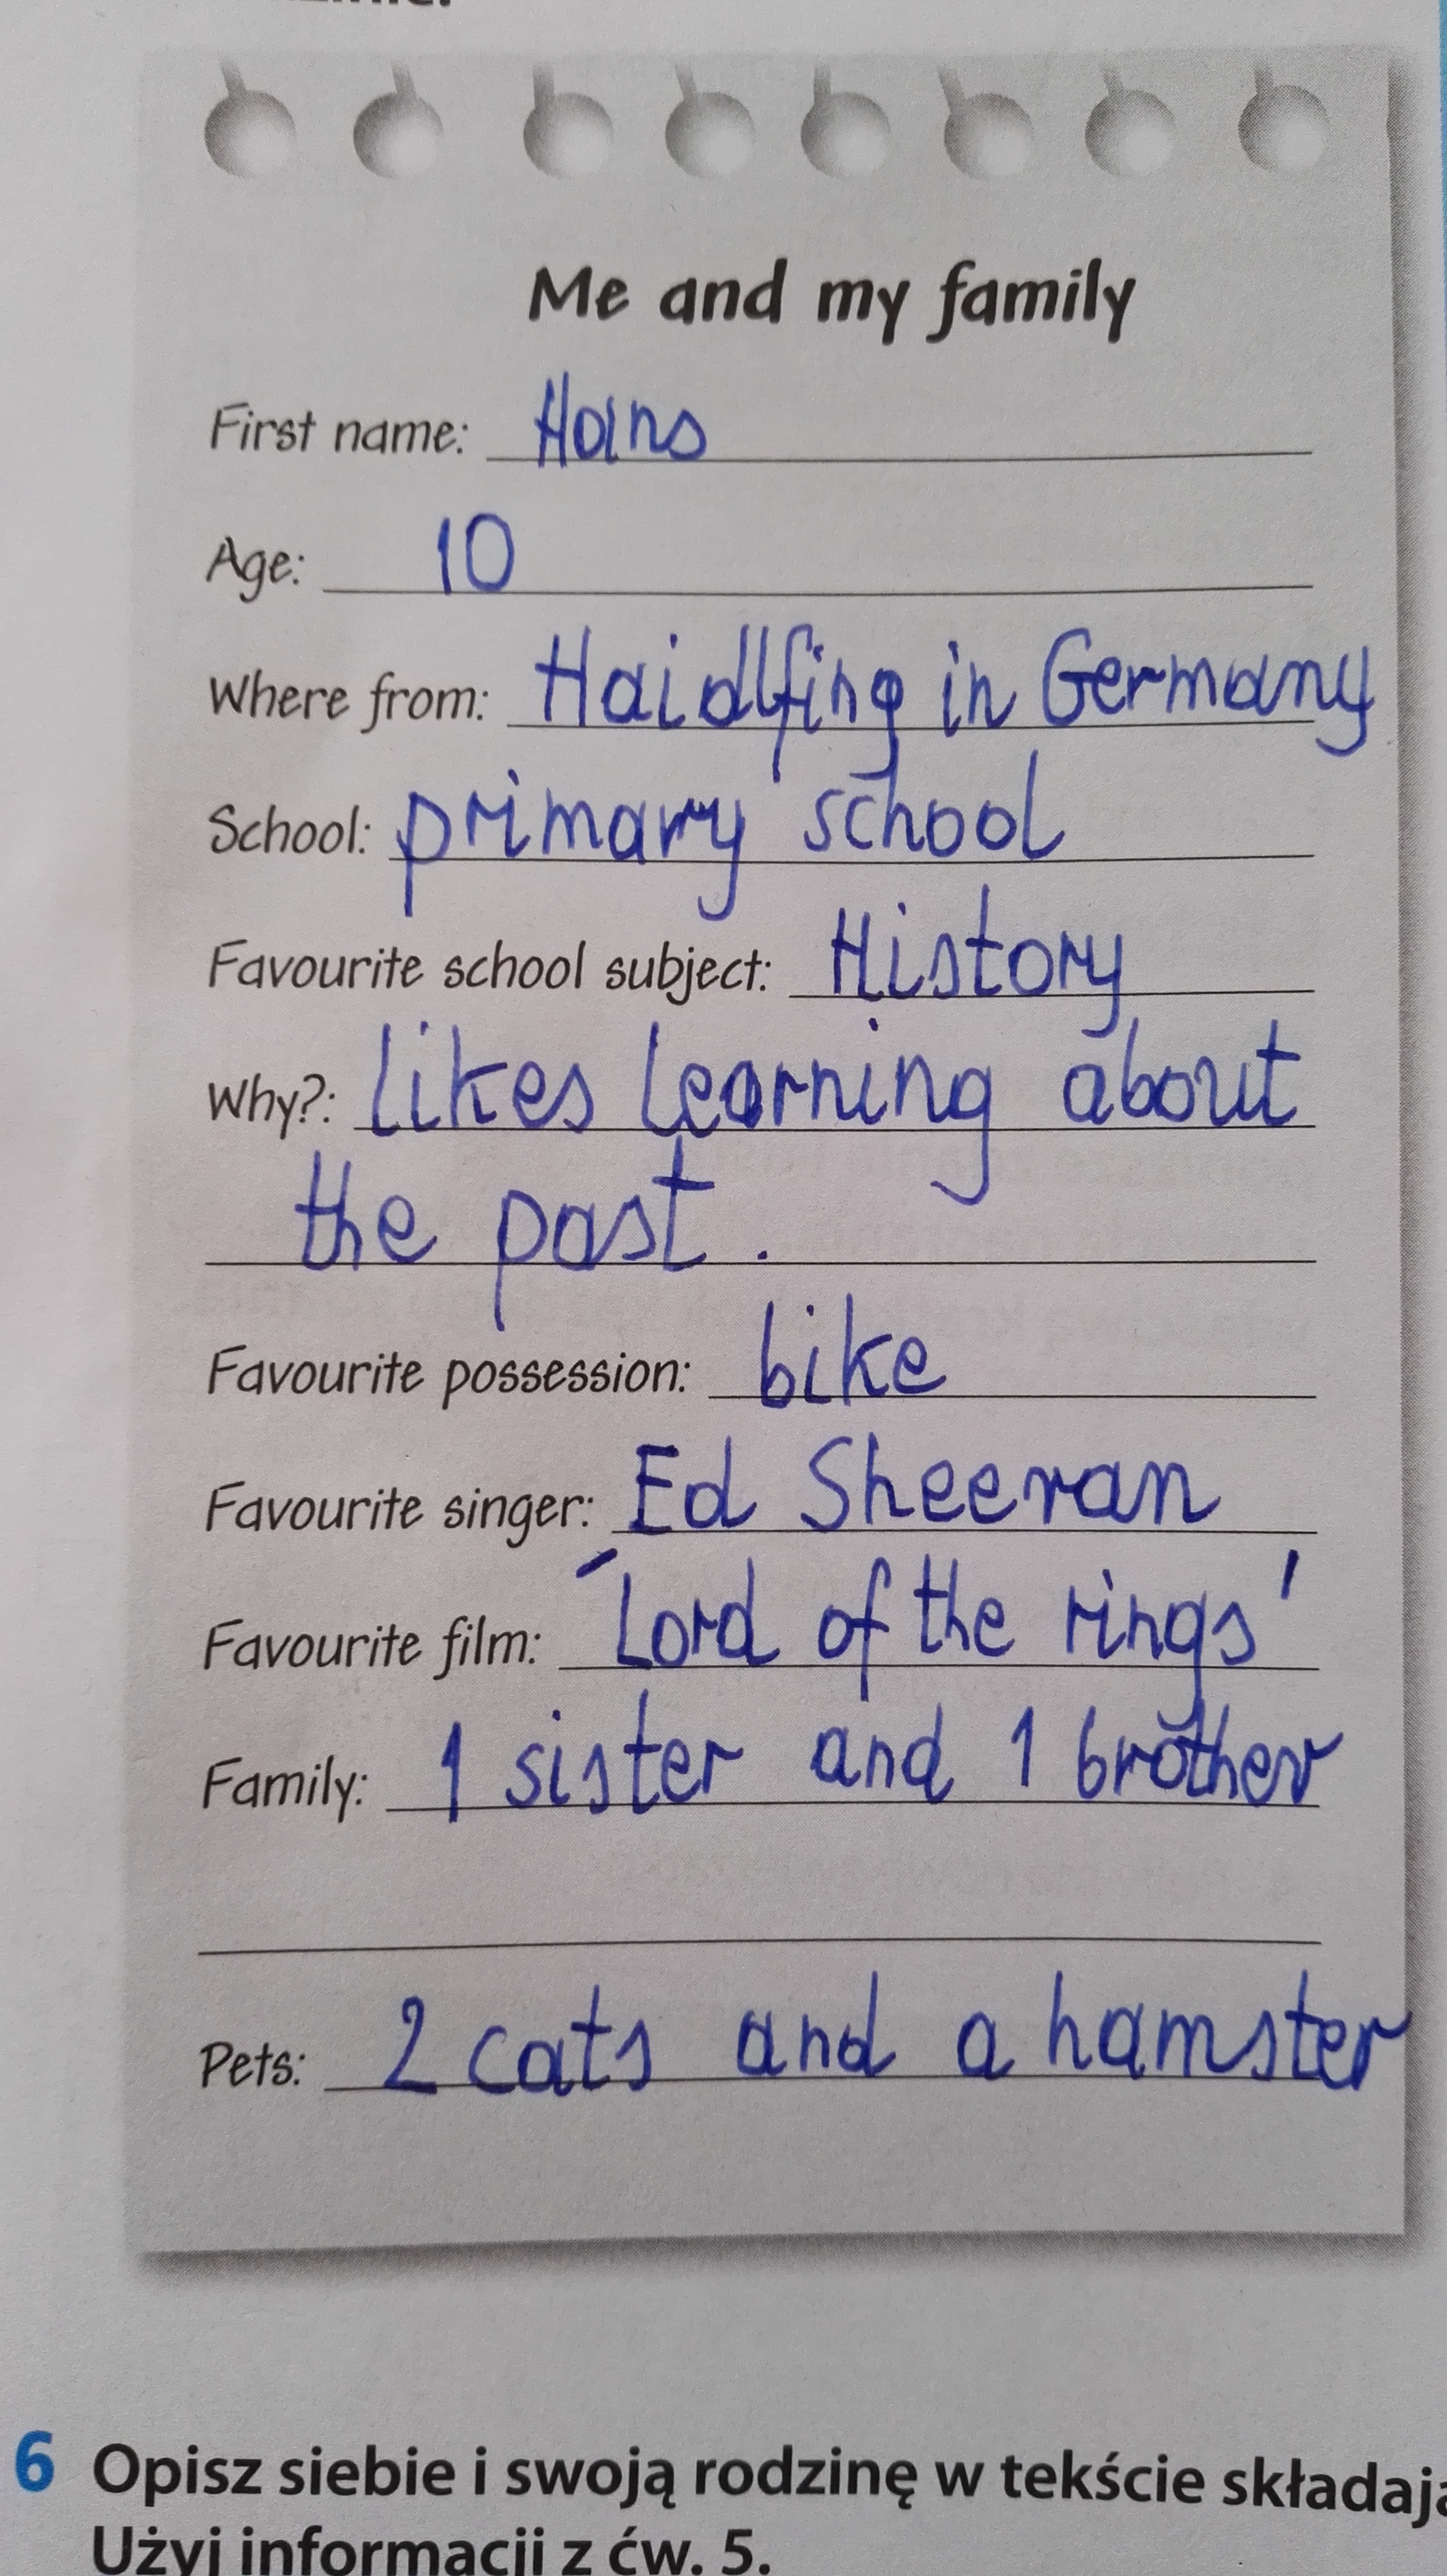 Me and my family
First name: Hans
Age: 10
Where from: Haidlfing in Germany
School: primary school
Favourite school subject: History
Why?: likes learning about
the past.
Favourite possession: bike
Favourite singer: Ed Sheeran
Favourite film: 'Lord of the rings'
Family: 1 sister and 1 brother
Pets: 2 cats and a hamster
6 Opisz siebie i swoją rodzinę w tekście składają
Użyj informacji z ćw. 5.